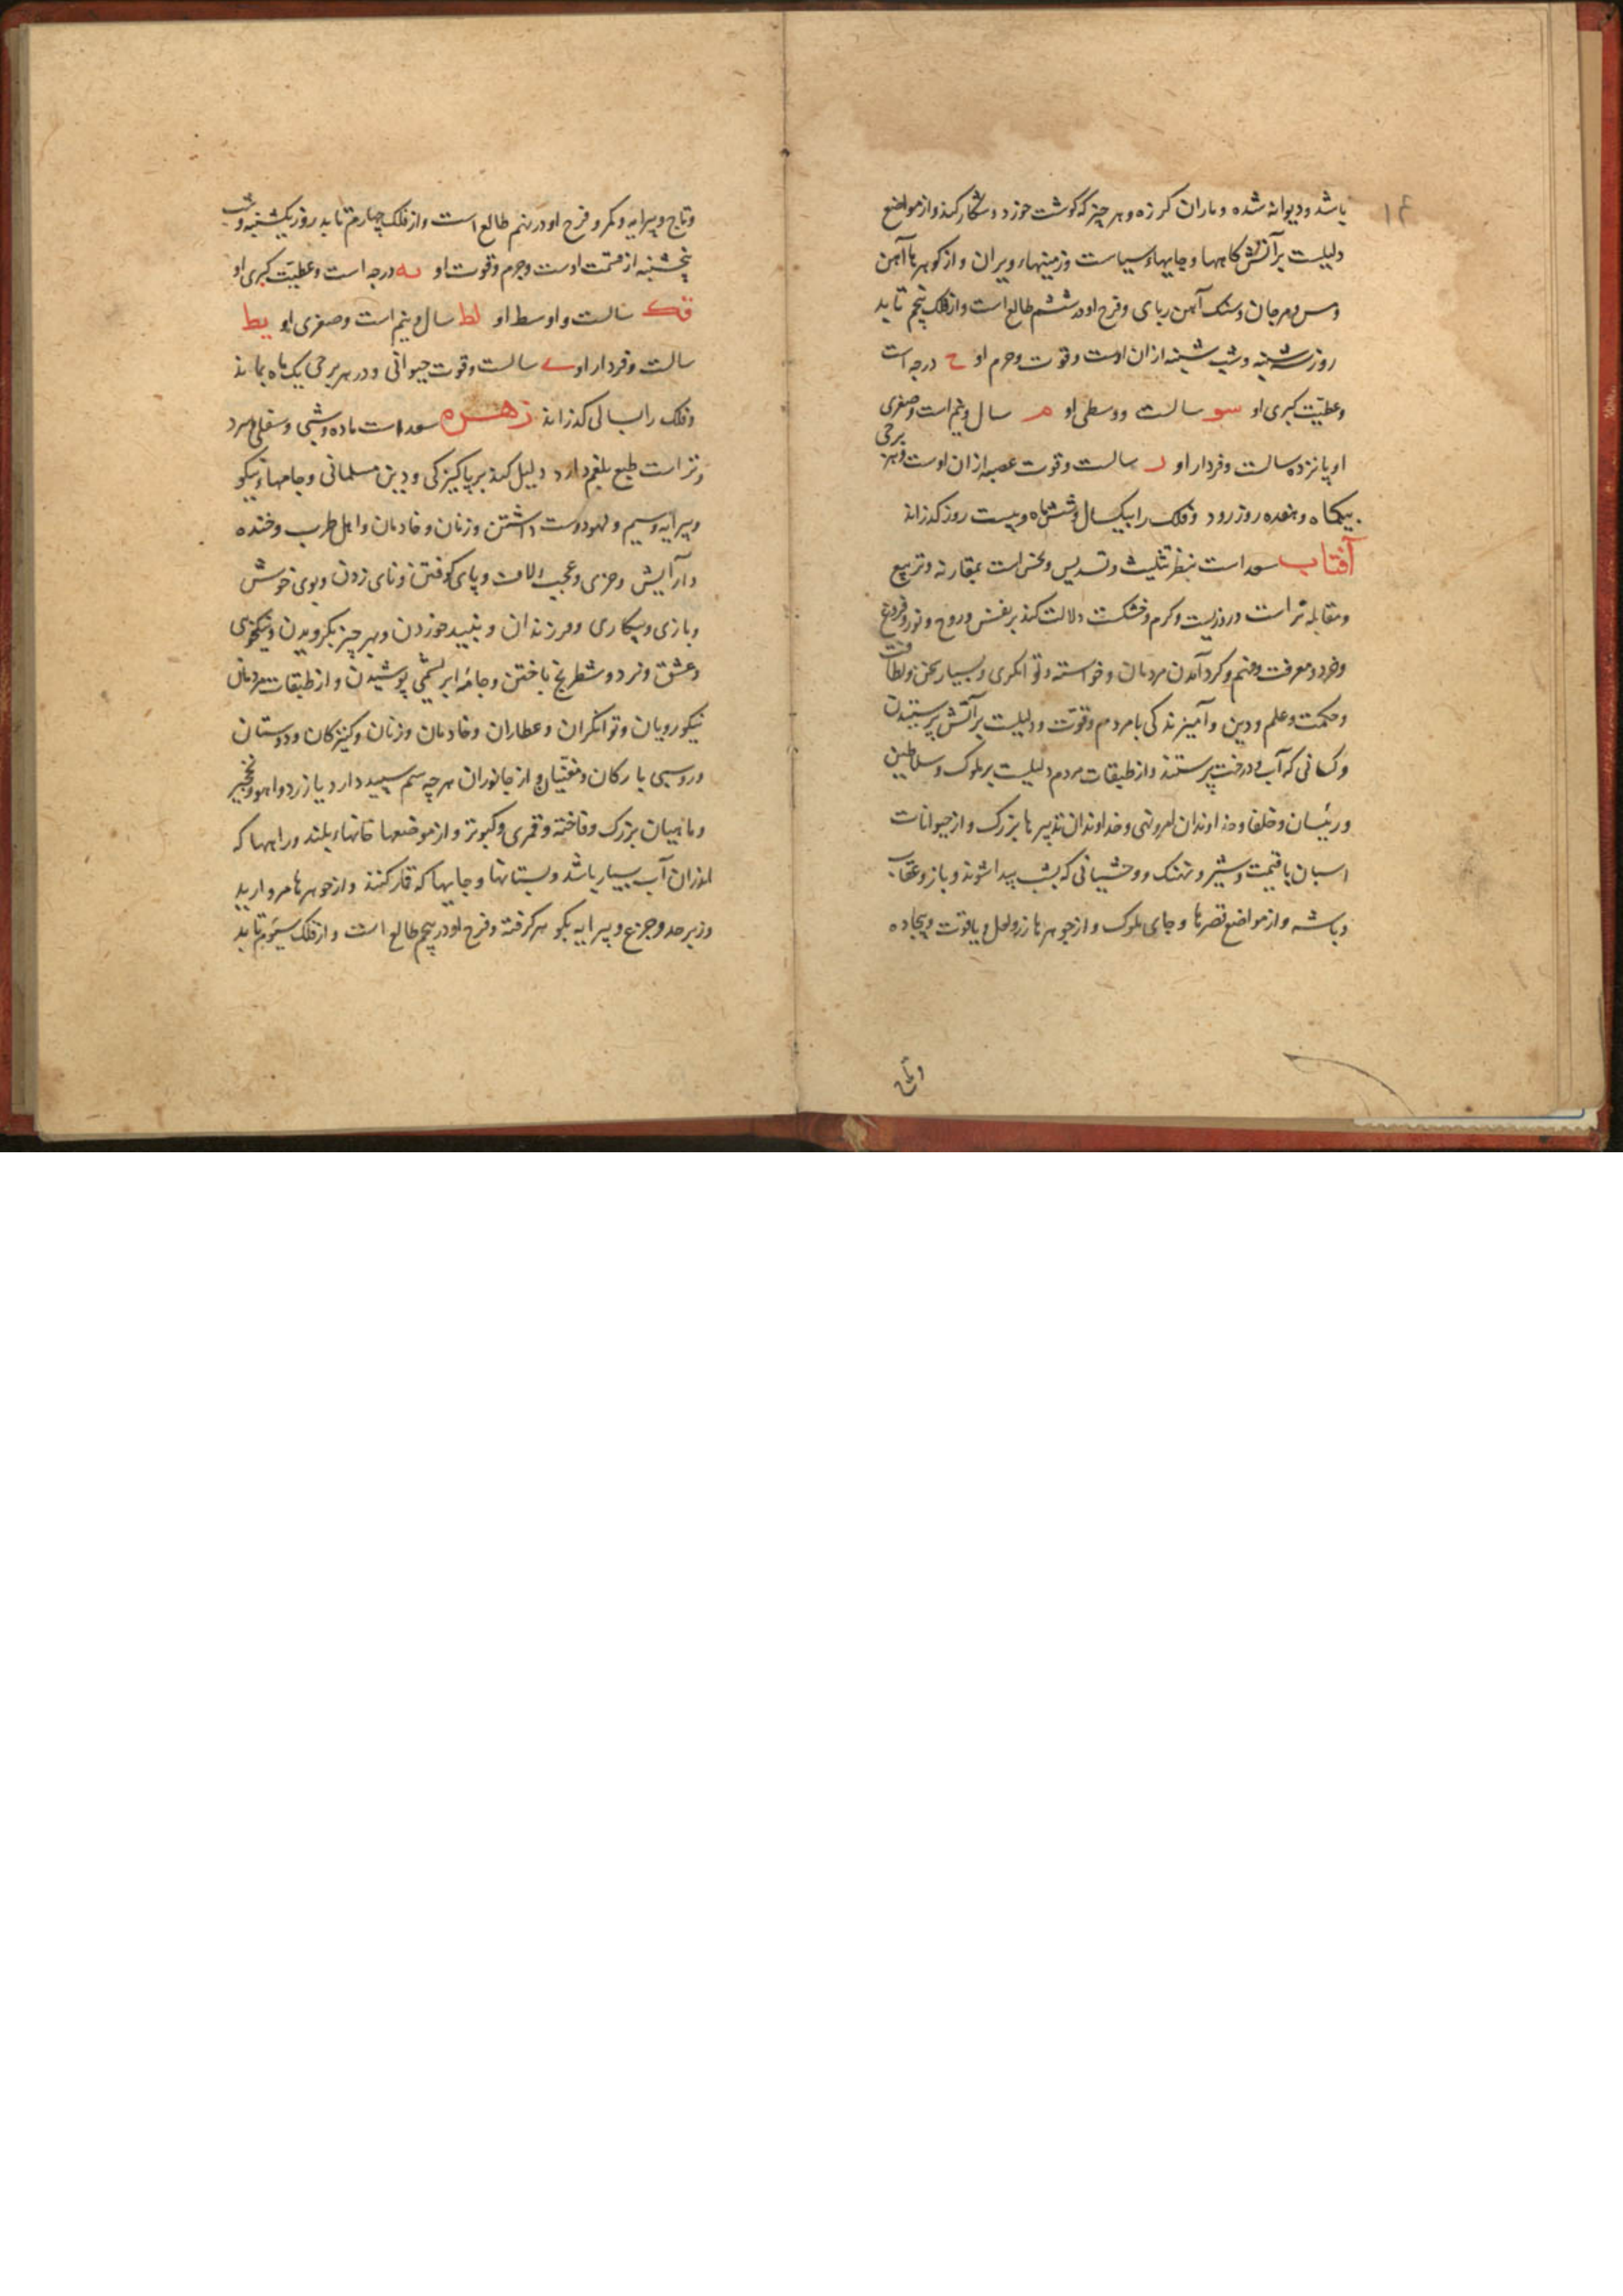 ۱۴
باشد و دیوانه شده و ماران کرزه و هر چیز که کوشت خورد و شکار کند و از مواضع
دلیلست بر آتش کاهها و جایهاء سیاست و زمینهاء ویران و از کوهرها آهن
و مس و مرجان و سنک آهن ربای و فرح او در ششم طالع است و از فلک پنجم تابد
روز سه شنبه و شب شنبه از ان اوست و قوت و جرم او ح درجه است
و عطیّت کبری او سو سالست و وسطی او م سال و نیم است و صغری
او پانزده سالست و فردار او ر سالست و قوت عصبه از ان اوست و بهر برجی
بیکماه و هفده روز رود و فلک را بیکسال و شش ماه و بیست روز کذراند
آفتاب سعد است بنظر تثلیث و تسدیس و نحس است بمقارنه و تربیع
و مقابله نر است و روزیست و کرم و خشکست دلالت کند بر نفس و روح و نور و فروغ
و خرد و معرفت و فهم و کرد آمدن مردمان و خواسته و توانکری و بسیار سخن و لطافت
و حکمت و علم و دین و آمیزندکی با مردم و قوّت و دلیلست بر آتش پرستیدن
و کسانی که آب و درخت پرستند و از طبقات مردم دلیلست بر ملوک و سلاطین
و رئیسان و خلفا و خداوندان امر و نهی و خداوندان تدبیرها بزرک و از حیوانات
اسبان با قیمت و شیر و نهنک و وحشیانی که بشب پیدا شوند و باز و عقاب
و باشه و از مواضع قصرها و جای ملوک و از جوهرها زر و لعل و یاقوت و بیجاده
وتاج
وتاج و پیرایه و کمر و فرح او در نهم طالع است و از فلک چهارم تابد روز یکشنبه و شب
پنجشنبه از قسمت اوست و جرم و قوت او یه درجه است و عطیّت کبری او
قک سالست و اوسط او لط سال و نیم است و صغری او یط
سالست و فردار او ی سالست و قوت حیوانی و در هر برجی یک ماه بماند
و فلک را بسالی کذراند زهره سعد است ماده و شبی و سفلی و سرد
و تر است طبع بلغم دارد دلیل کند بر پاکیزکی و دین مسلمانی و جامهاء نیکو
و پیرایه و سیم و لهو دوست داشتن و زنان و خادمان و اهل طرب و خنده
و آرایش و عجیب الات و پای کوفتن و نای زدن و بوی خوش
و بازی و بیکاری و فرزندان و نبید خوردن و بهر چیز بکرویدن و نیکخویی
و عشق و نرد و شطرنج باختن و جامه ابریشمی پوشیدن و از طبقات مردمان
نیکورویان و توانکران و عطاران و خادمان و زنان و کنیزکان و دوستان
و روسبی بارکان و مغنّیان و از جانوران هر چه سم سپید دارد یا زرد و اهو و نخجیر
و ماهیان بزرک و فاخته و قمری و کبوتر و از موضعها خانهاء بلند و راهها که
اندران آب بسیار باشد و بستانها و جایها که قمار کنند و از جوهرها مروارید
و زبرجد و جزع و پیرایه بکوهر کرفته و فرح او در پنجم طالع است و از فلک سیّوم تابد